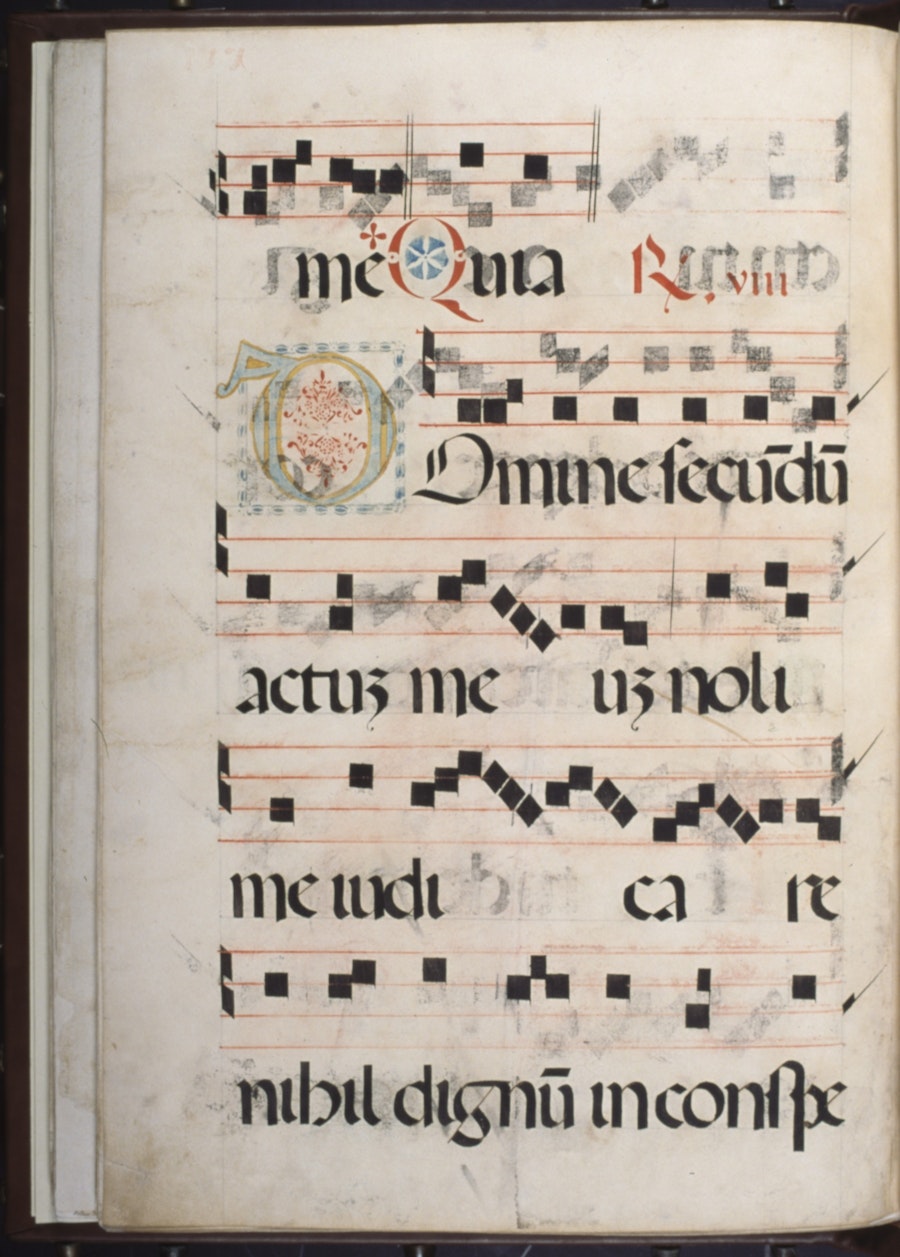 me Quia R. viii
Domine secūdū
actuȝ me uȝ noli
me iudi ca re
nihil dignū in conspe